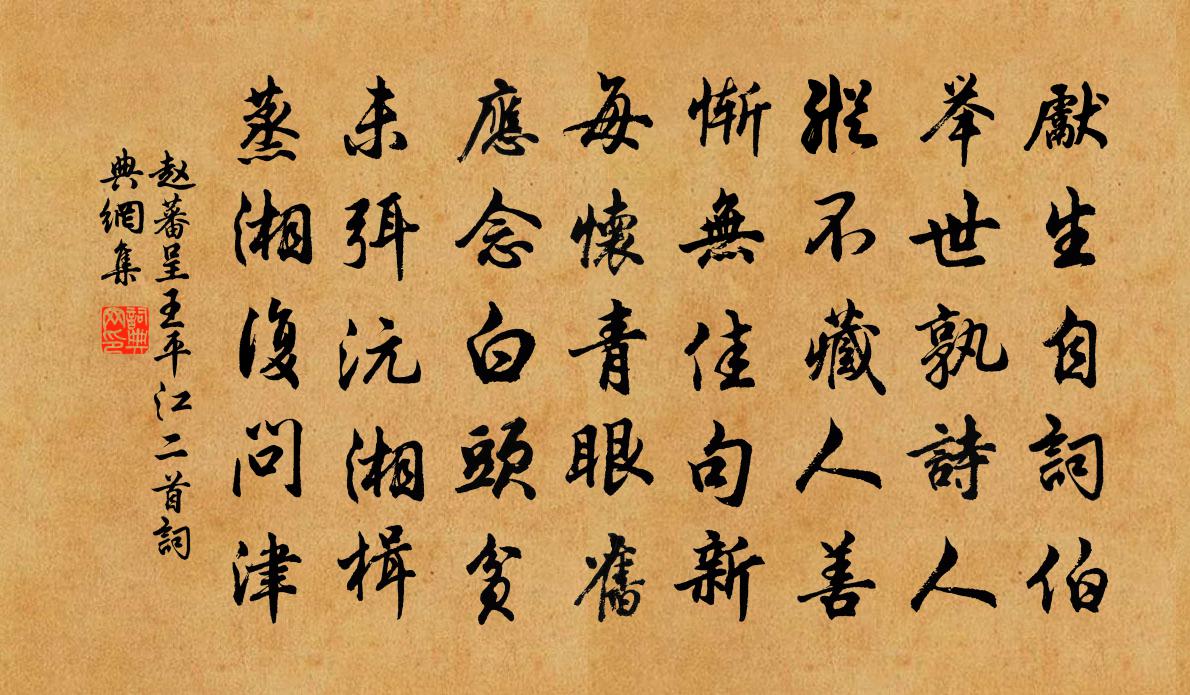 獻生自詞伯
举世孰詩人
縱不藏人善
惭無佳句新
每懷青眼舊
應念白頭贫
未弭沅湘楫
蒸湘復问津
赵蕃呈王平江二首詞
典網集
詞典
网印